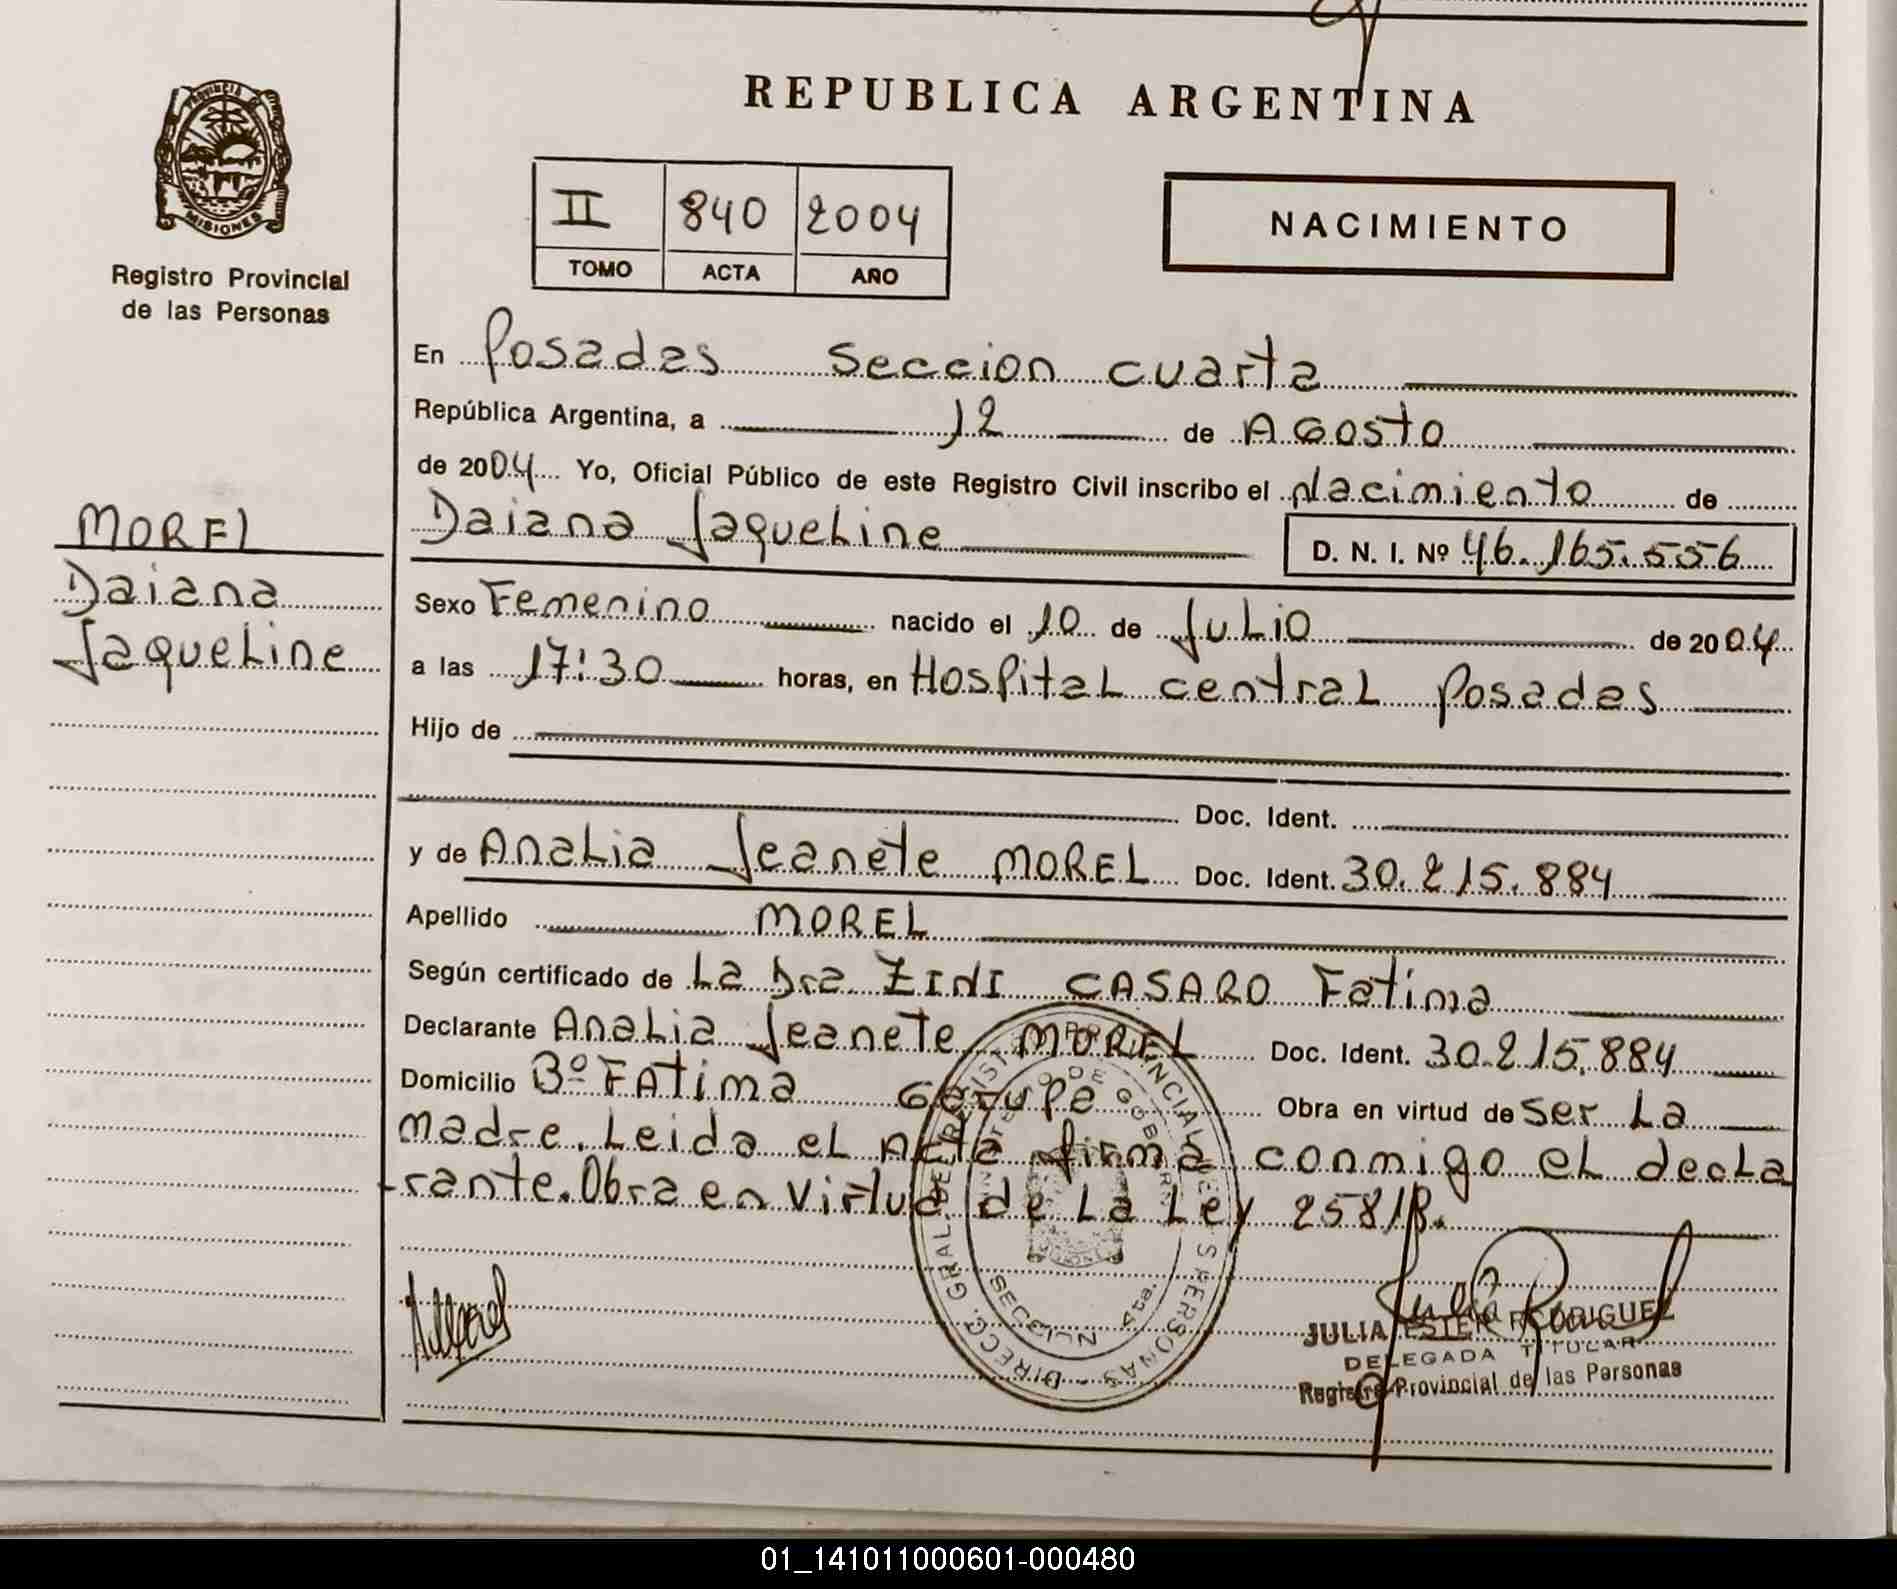 REPUBLICA ARGENTINA
PROVINCIA DE
MISIONES
Registro Provincial
de las Personas
II 840 2004
TOMO ACTA AÑO
NACIMIENTO
En Posadas Seccion cuarta
República Argentina, a 12 de Agosto
de 2004 Yo, Oficial Público de este Registro Civil inscribo el Nacimiento de
MOREL
Daiana
Jaqueline
Daiana Jaqueline D. N. I. Nº 46.165.556
Sexo Femenino nacido el 10 de Julio de 2004
a las 17:30 horas, en Hospital central Posadas
Hijo de
Doc. Ident.
y de Analia Jeanete MOREL Doc. Ident. 30.215.884
Apellido MOREL
Según certificado de La Dra ZINI CASARO Fatima
Declarante Analia Jeanete MOREL Doc. Ident. 30.215.884
Domicilio Bº FAtima Garupa Obra en virtud de ser La
madre. Leida el Acta firma conmigo el decla
rante. Obra en virtud de La Ley 2581/
DIRECC. GRAL. DEL REGISTRO PROVINCIAL DE LAS PERSONAS
MINISTERIO DE GOBIERNO
SECCION 4ta.
AMorel
JULIA ESTER RODRIGUEZ
DELEGADA TITULAR
Registro Provincial de las Personas
01_141011000601-000480